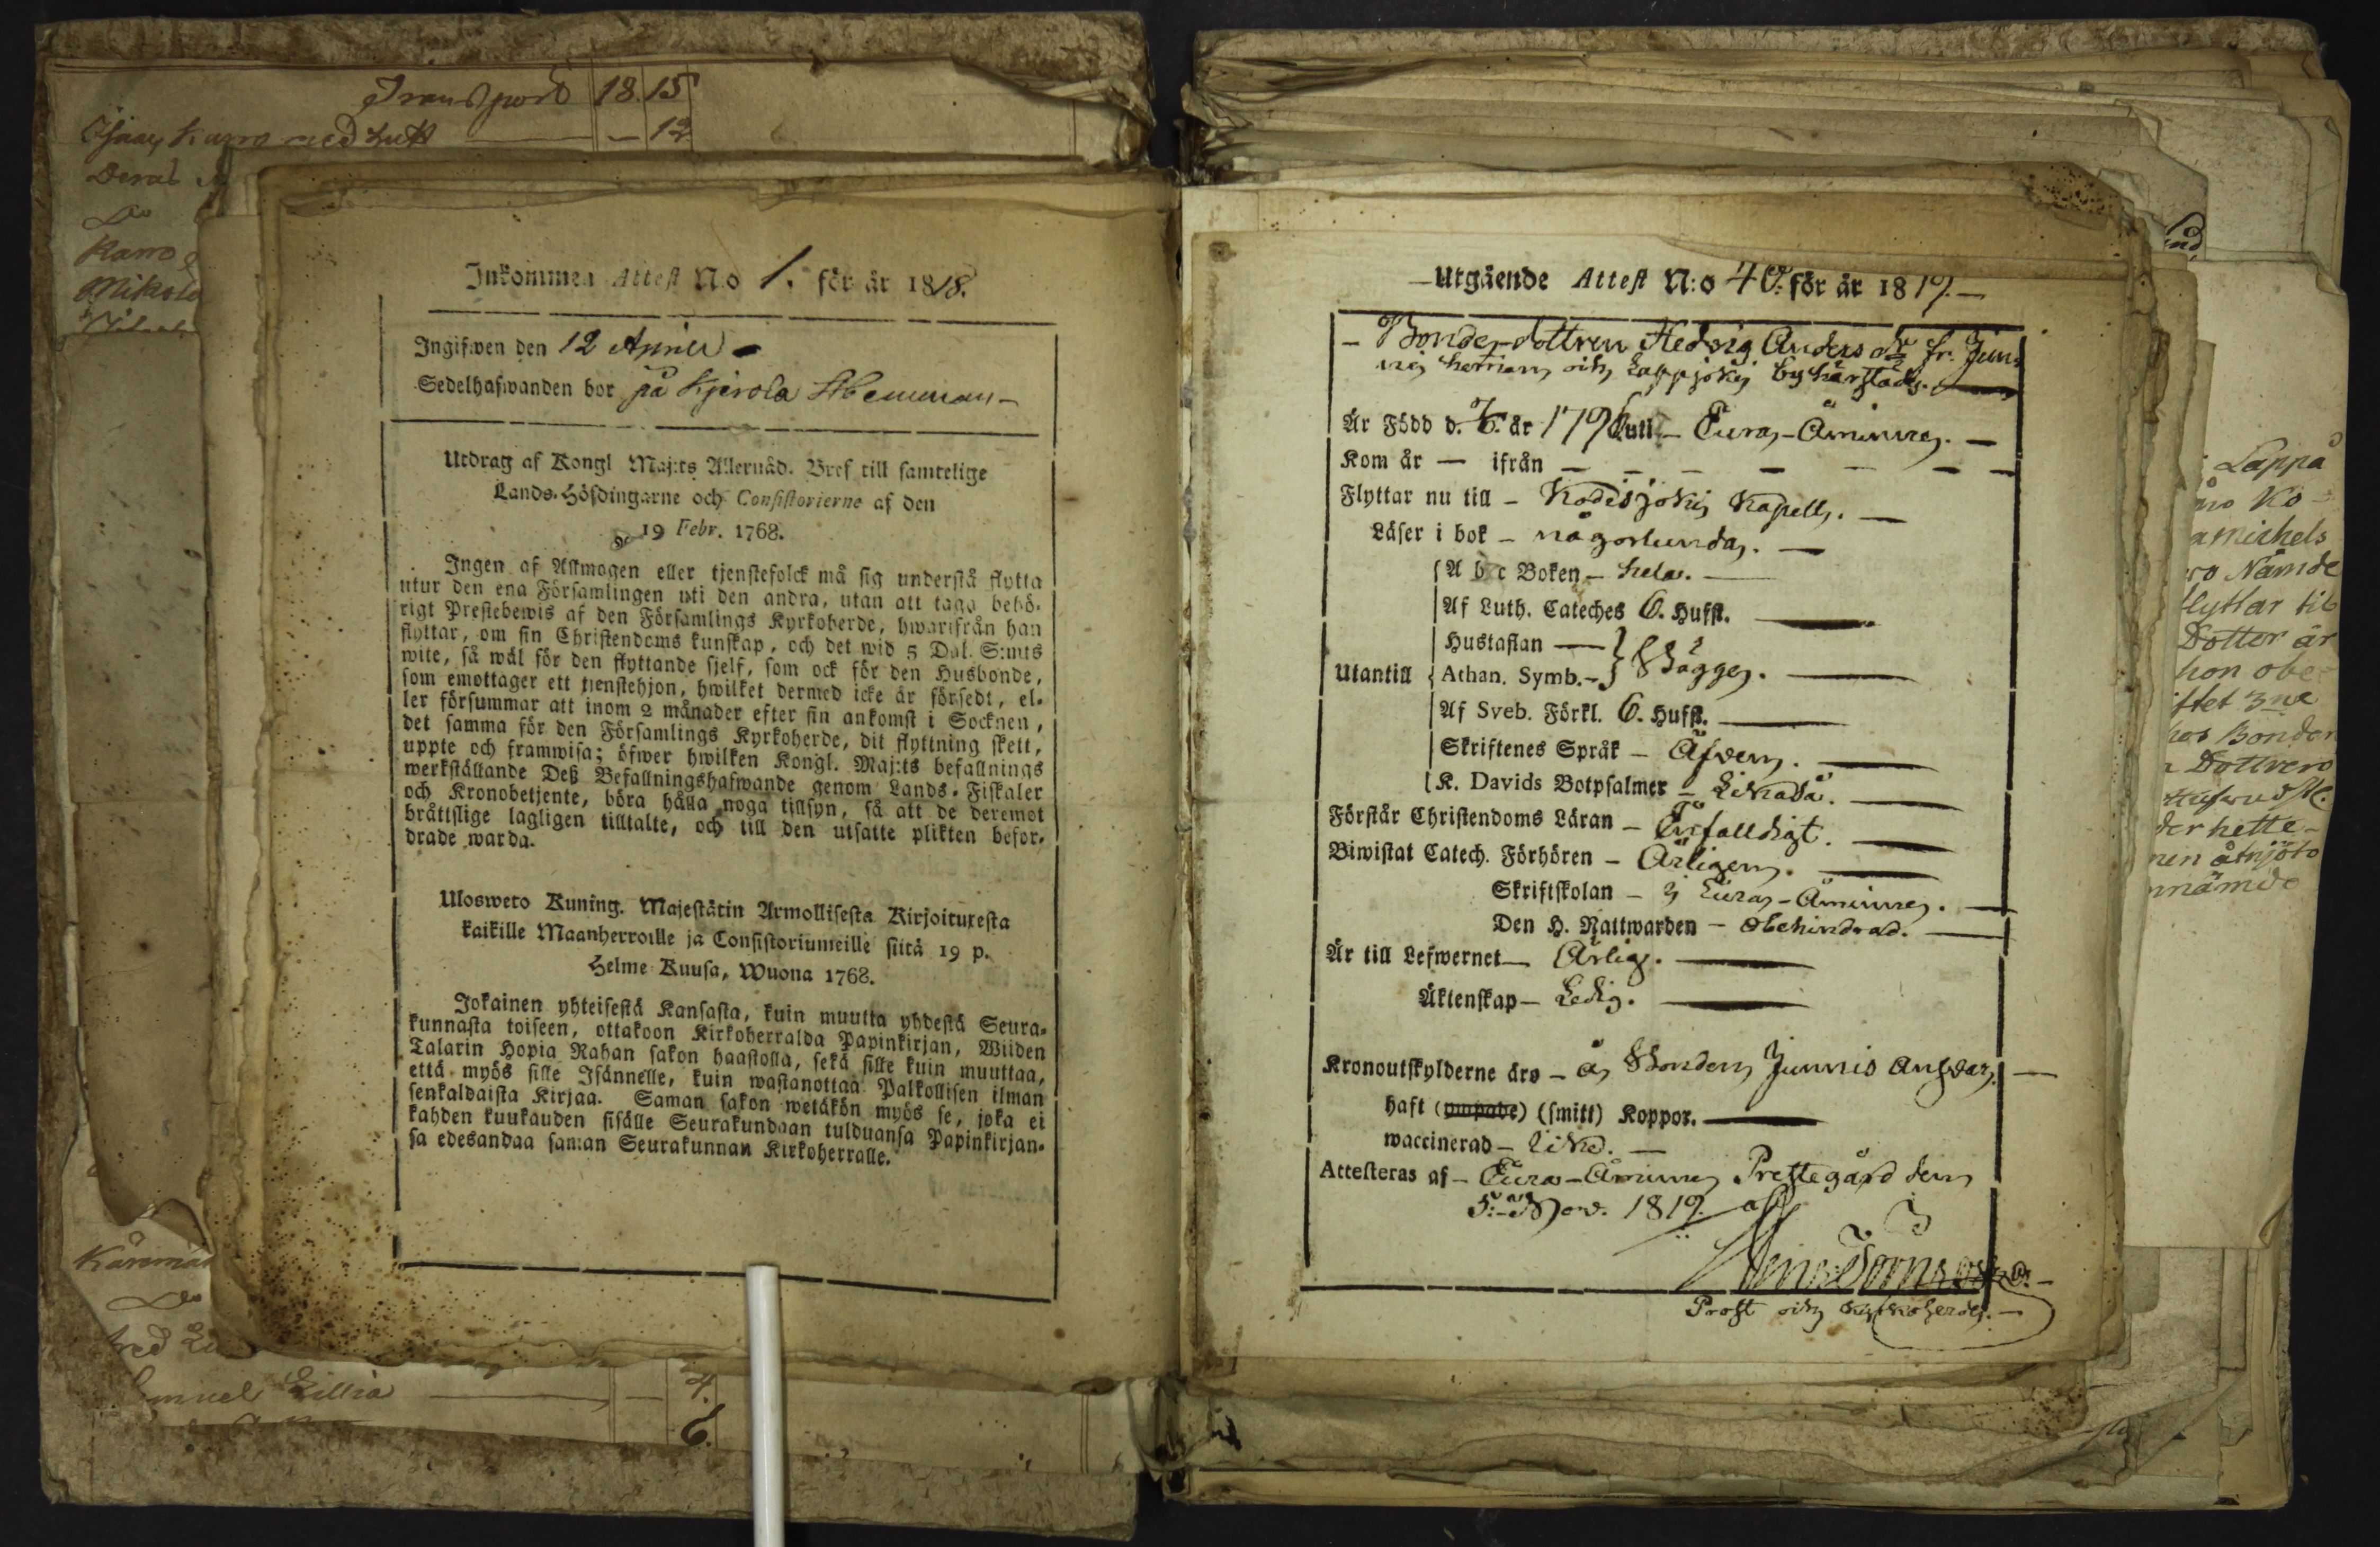 Transport 18. 15
— 12
Karro
Inkommen Attest N:o 1. för år 1818.
Ingifwen den 12 April
Sedelhafwanden bor på Kjerola Hemman
Utdrag af Kongl Maj:ts Allernåd. Bref till samtelige
Lands-Höfdingarne och Consistorierne af den
19 Febr. 1768.
Ingen af Allmogen eller tjenstefolck må sig understå flytta
utur den ena Församlingen uti den andra, utan att taga behö-
rigt Prestebewis af den Församlings Kyrkoherde, hwarifrån han
flyttar, om sin Christendoms kunskap, och det wid 5 Dal. S:mts
wite, så wäl för den flyttande sjelf, som ock för den Husbonde,
som emottager ett tjenstehjon, hwilket dermed icke är försedt, el-
ler försummar att inom 2 månader efter sin ankomst i Socknen,
det samma för den Församlings Kyrkoherde, dit flyttning skett,
uppte och framwisa; öfwer hwilken Kongl. Maj:ts befallnings
werkställande Deß Befallningshafwande genom Lands-Fiskaler
och Kronobetjente, böra hålla noga tillsyn, så att de deremot
bråttslige lagligen tilltalte, och till den utsatte plikten befor-
drade warda.
Ulosweto Kuning. Majestätin Armollisesta Kirjoituxesta
kaikille Maanherroille ja Consistoriumeille siitä 19 p.
Helme-Kuusa, Wuona 1768.
Jokainen yhteisestä Kansasta, kuin muutta yhdestä Seura-
kunnasta toiseen, ottakoon Kirkoherralda Papinkirjan, Wiiden
Talarin Hopia Rahan sakon haastolla, sekä sille kuin muuttaa,
että myös sille Isännelle, kuin wastanottaa Palkollisen ilman
senkaldaista Kirjaa. Saman sakon wetäkön myös se, joka ei
kahden kuukauden sisälle Seurakundaan tulduansa Papinkirjan-
sa edesandaa saman Seurakunnan Kirkoherralle.
Lillia — 4.
6.
Utgående Attest N:o 40. för år 1819.
Bonde-dottren Hedvig Anders dr fr. Jun-
nis hemman och Lappjoki by härstädes.
Är Född d. 7/6. år 1796 uti Eura-Åminne.
Kom år — ifrån —
Flyttar nu till — Kodisjoki Kapell.
Läser i bok — någorlunda.
A b c Boken — hela.
Af Luth. Cateches 6. Hufst.
Hustaflan —
Utantill Athan. Symb. — Bägge.
Af Sveb. Förkl. 6. Hufst.
Skriftenes Språk — Äfven.
K. Davids Botpsalmer — Likaså.
Förstår Christendoms Läran — Enfalldigt.
Biwistat Catech. Förhören — Årligen.
Skriftskolan — i Eura-Åminne.
Den H. Nattwarden — obehindrad.
Är till Lefwernet — Ärlig.
Äktenskap — Ledig.
Kronoutskylderne äro — å Bonden Junnis ansvar.
haft (ympade) (smitt) Koppor.
waccinerad —
Attesteras af — Eura-Åminne Prestegård den
5. Nov. 1819. af
Prost och Kyrkoherde.
Lappå
Ko-
michels
Nämde
flyttar til
Dotter är
hon obe-
3ne
Bonden
Dottren
hette
åtnjöto
nämde